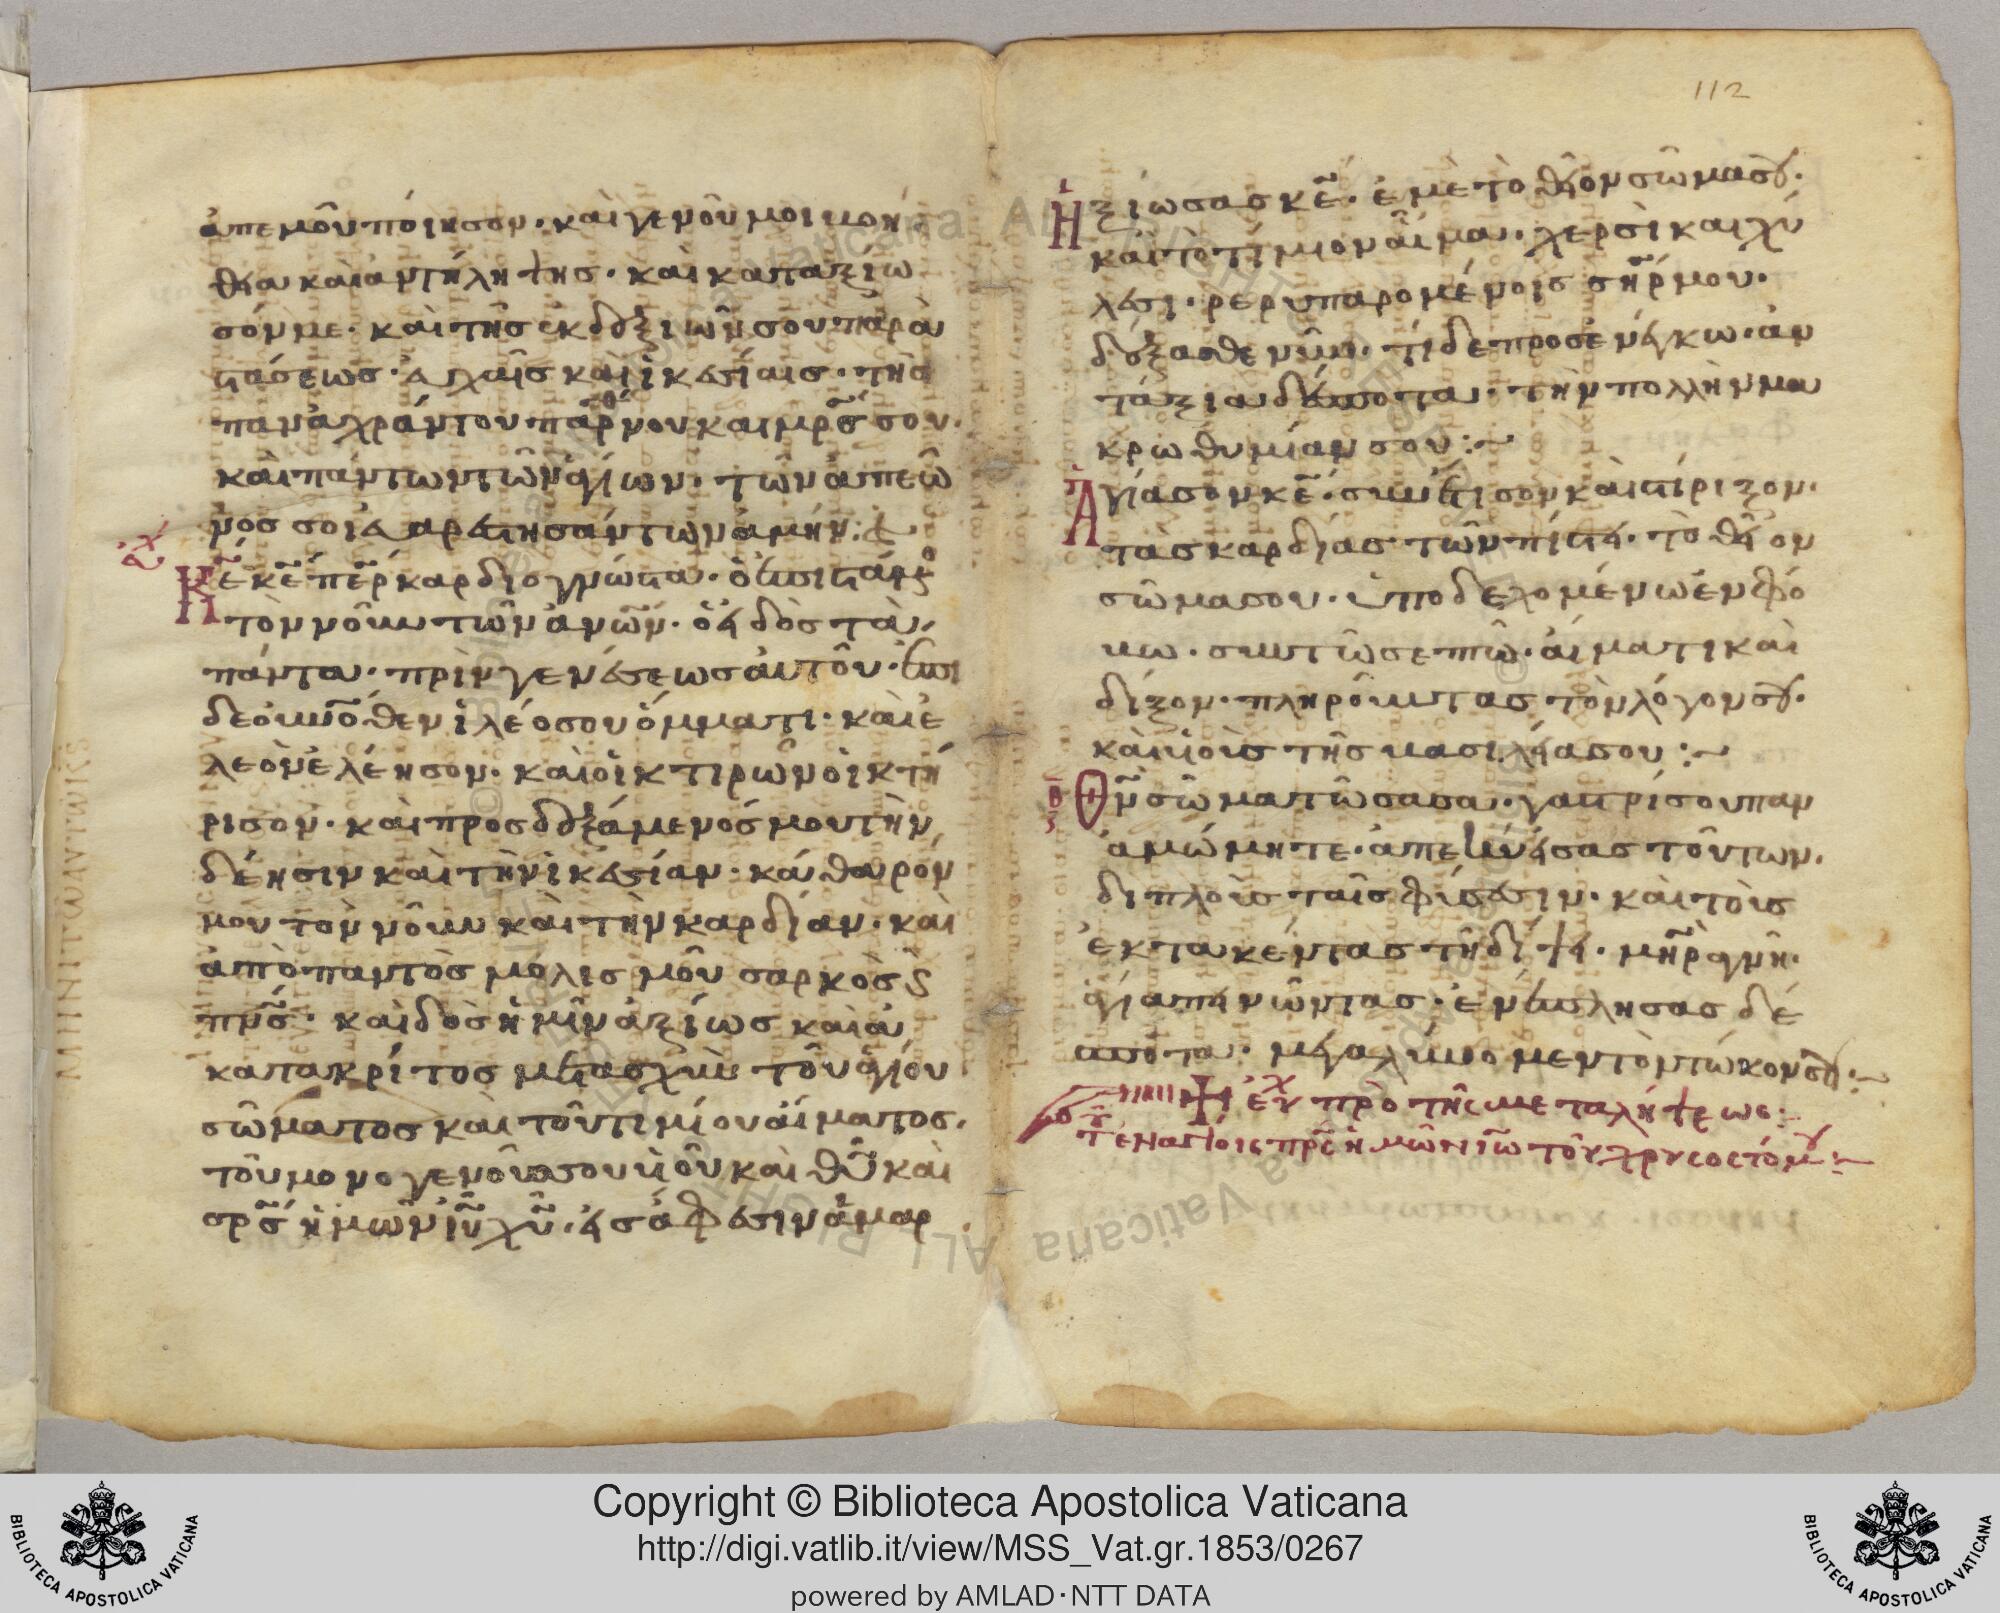 ἀπεμοῦ ποίησον· καὶ γενοῦ μοι βοή
θεια καὶ ἀντήληψης· καὶ καταξίω
σόν με· καὶ τῆς ἐκ δεξιῶν σου παρα
στάσεως· εὐχαῖς καὶ ἱκεσίαις· τῆς
παναχράντου παρθένου καὶ μρσ̄ σου·
καὶ πάντων τῶν ἁγίων· τῶν ἀπεῶ
νος σοι εὐαρεστησάντων ἀμήν:
εὐχ
Κ̄ε κ̄ε π̄ερ καρδιογνώστα· ὁ ἐπιστάμενος
τὸν νοῦν τῶν ἀνω̄ν· ὁ εἰδὼς τὰ
πάντα· πρὶν γενέσεως αὐτοῦ· ἐπι
δε οὐνο̄θεν ἱλέο σου ὄμματι· καὶ ἐ
λεὸν ἐλέησον· καὶ οἰκτιρῶν οἰκτή
ρισον· καὶ προσδεξάμενός μου τὴν
δέησιν καὶ τὴν ἱκεσίαν· καθαρόν
μου τὸν νοῦν καὶ τὴν καρδίαν· καὶ
ἀπὸ παντὸς μόλισμοῦ σαρκὸς ϗ
πνσ̄· καὶ δὸς ἡμῖν ἀξίως καὶ ἀ
κατακρίτος μετασχεῖν τοῦ ἁγίου
σώματος καὶ τοῦ τιμίου αἵματος·
τοῦ μονογενοῦς σου υἱοῦ καὶ θ̄υ καὶ
σρσ̄ ἡμῶν ῑυ χ̄υ· εἰς ἄφεσιν ἁμαρ
112
Ἠξίωσας κ̄ε· ἐμὲ τὸ θεῖον σῶμα σου·
καὶ τὸ τίμιον αἷμα· χερσὶ καὶ χεί
λεσι· ρερυπαρομένοις σ̄ηρ μου·
δόξα σθενει· τί δὲ προσενέγκω· ἀν
τάξια δέσποτα· τὴν πολλὴν μα
κρωθυμίαν σου:~
Ἁγίασον κ̄ε· συνέτισον καὶ στίριξον·
τὰς καρδίας τῶν πίστει· τὸ θεῖον
σῶμα σου· ὑποδεχομένω ἐν φό
βω· συν τῶ σεπτῶ· αἵματι καὶ
δίξον· πληροῦντας τὸν λόγον σου·
καὶ υἱοὺς τῆς βασιλείας σου:~
Θ̄ν σωματῶσασα· γαστρί σου παν
ἀμώμητε· ἀπεκύησας τοῦτων·
διπλοῖς ταῖς φύσεσιν· καὶ τοὺς
ἐκτακέντας τῆ δίψει· μ̄ηρ ἁγνὴ·
ἁγία πεινῶντας· ἐνέπλησας δέ
σποτα· μεγαλύνομεν τὸν τώκον σου:~
εὐχ πρὸ τῆς μεταλήψεως:
τ ἐν ἁγίοις πρσ̄ ἡμῶν ῑω τοῦ χρυσοστόμου:~
Copyright © Biblioteca Apostolica Vaticana
http://digi.vatlib.it/view/MSS_Vat.gr.1853/0267
powered by AMLAD·NTT DATA
BIBLIOTECA APOSTOLICA VATICANA
BIBLIOTECA APOSTOLICA VATICANA